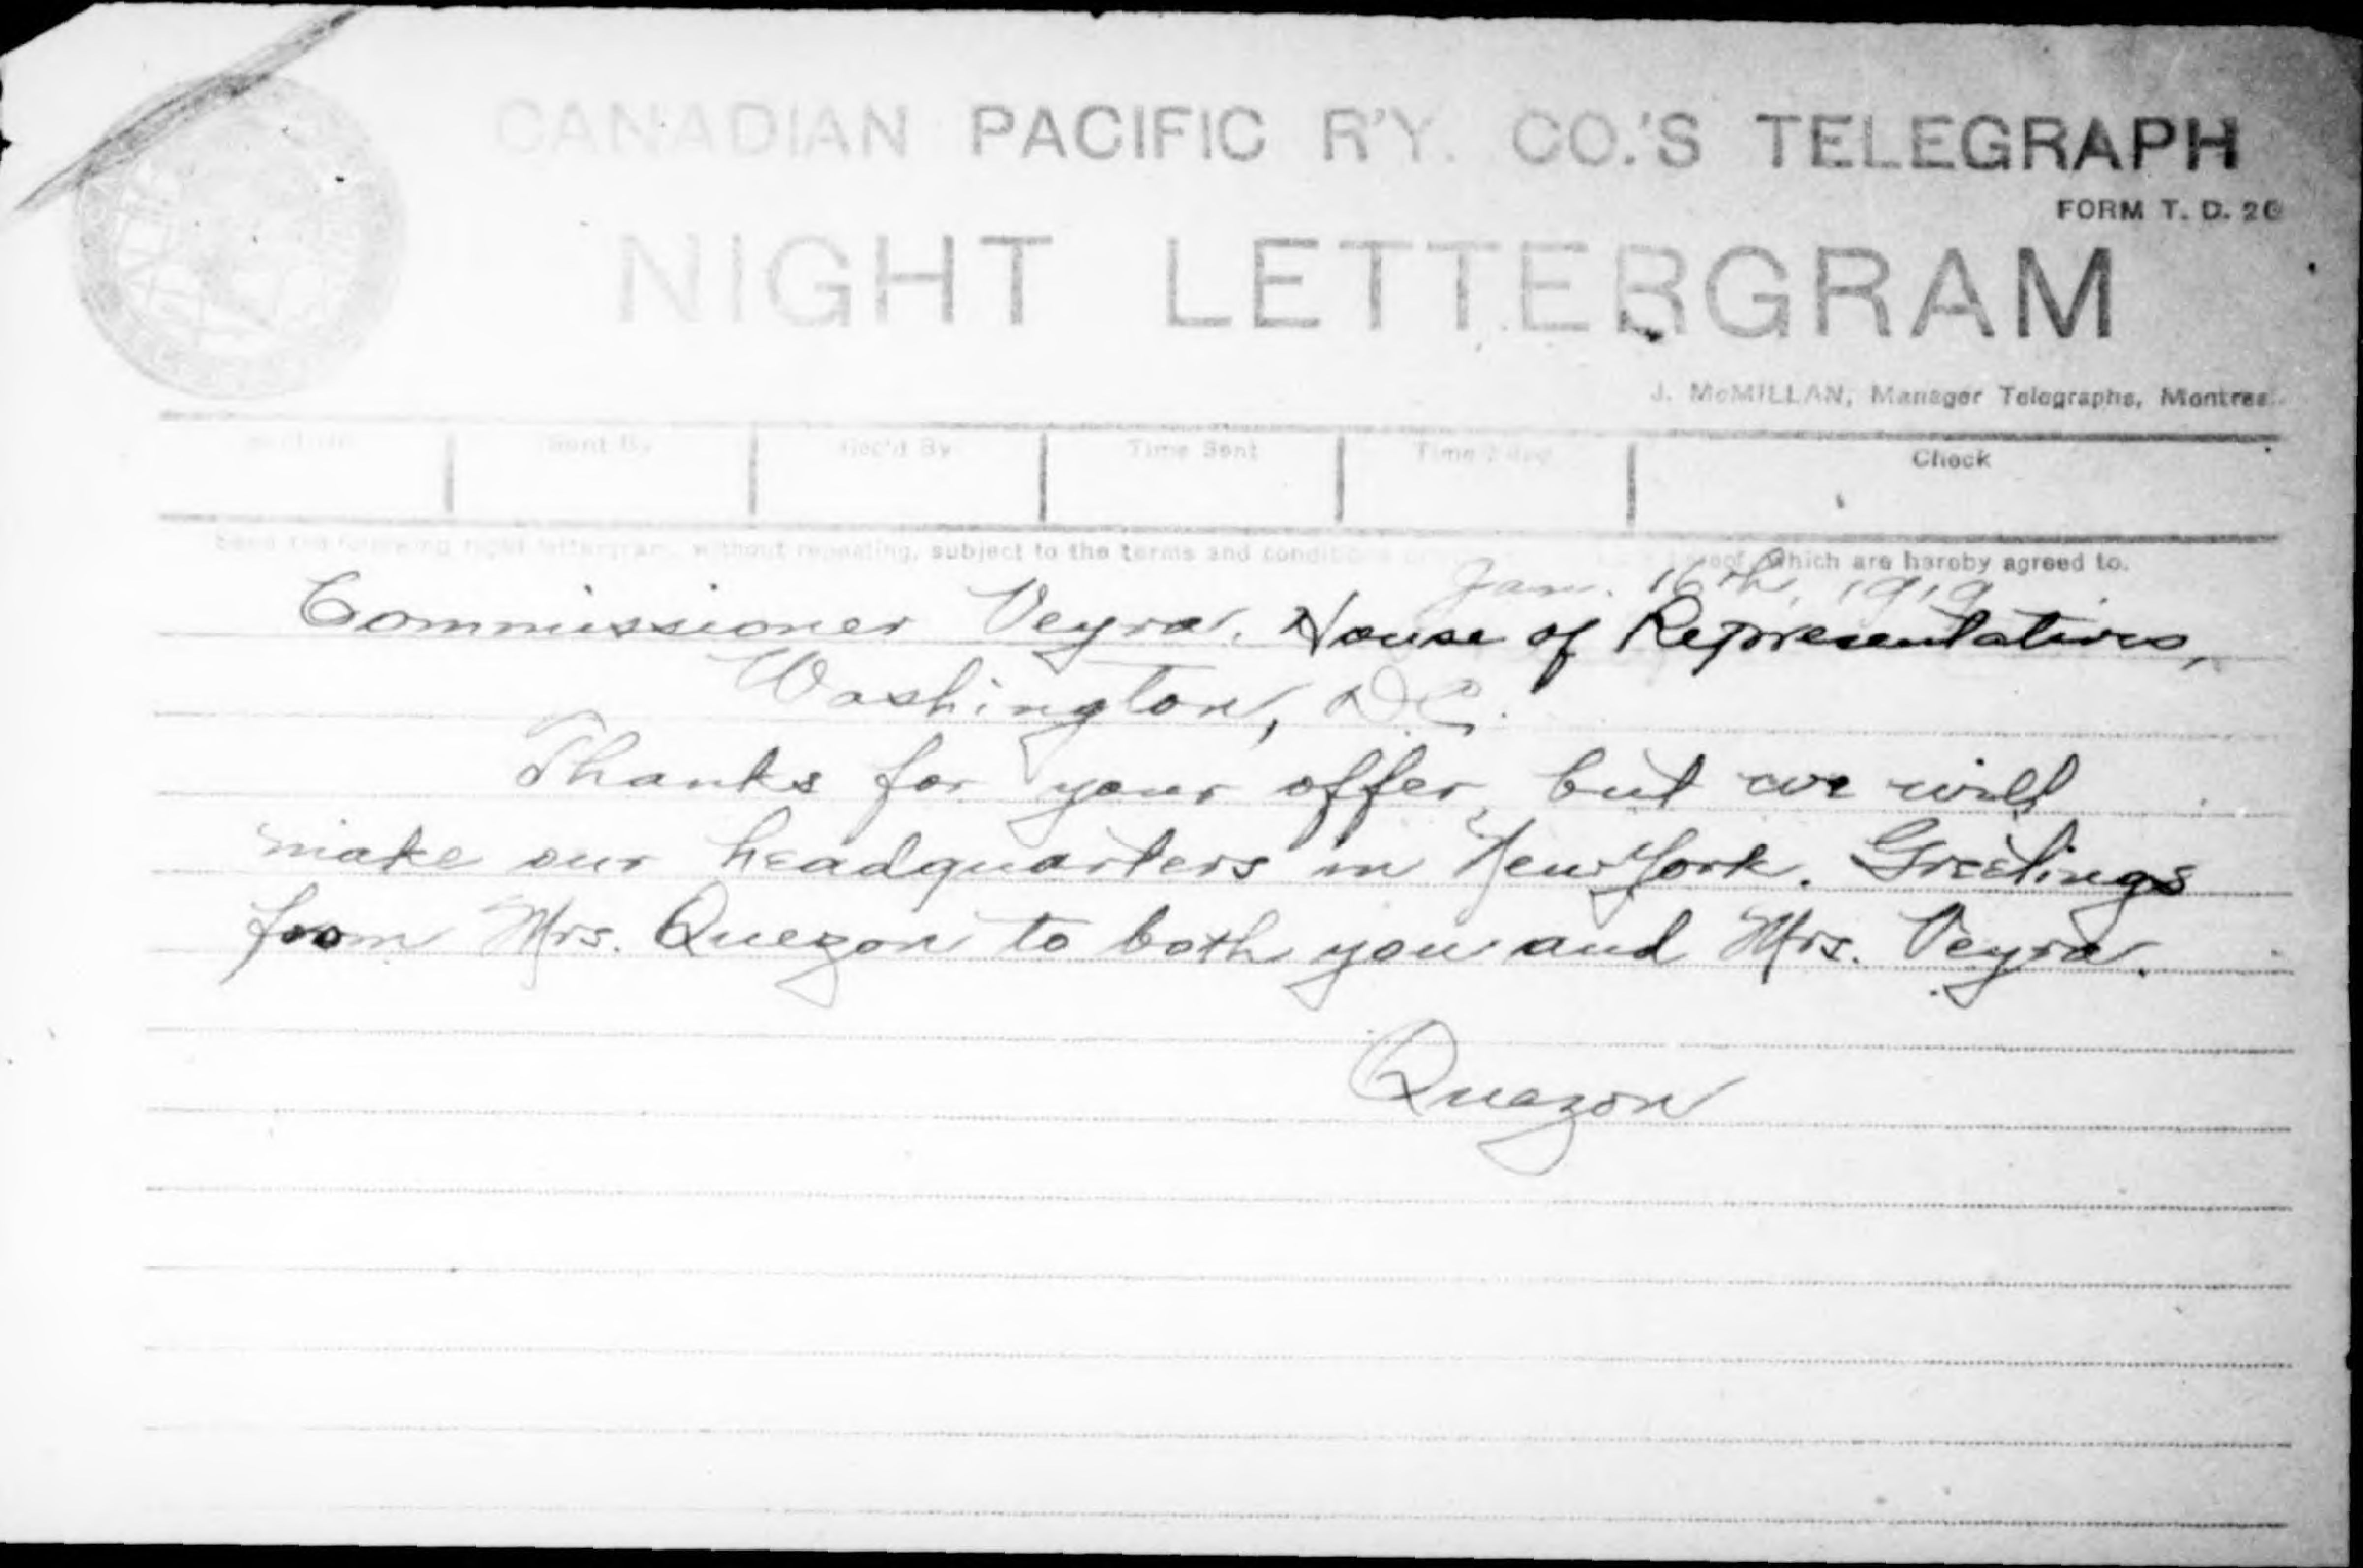 CANADIAN PACIFIC R'Y. CO.'S TELEGRAPH
FORM T. D. 20
NIGHT LETTERGRAM
J. McMILLAN, Manager Telegraphs, Montreal.
Sent By Rec'd By Time Sent Time Filed Check
Send the following night lettergram, without repeating, subject to the terms and conditions hereof, which are hereby agreed to.
Jan. 16th, 1919
Commissioner Veyra, House of Representatives,
Washington, D.C.
Thanks for your offer, but we will
make our headquarters in New York. Greetings
from Mrs. Quezon to both you and Mrs. Veyra.
Quezon